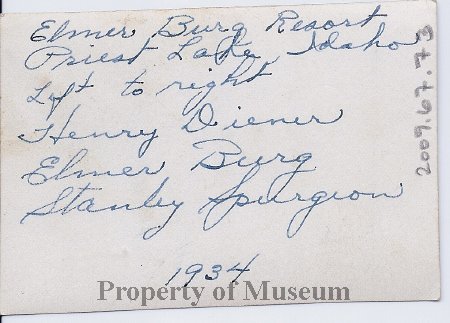 Elmer Burg Resort
Priest Lake, Idaho
Left to right
Henry Diener
Elmer Burg
Stanley Spurgeon
1934
Property of Museum
2009.67.73